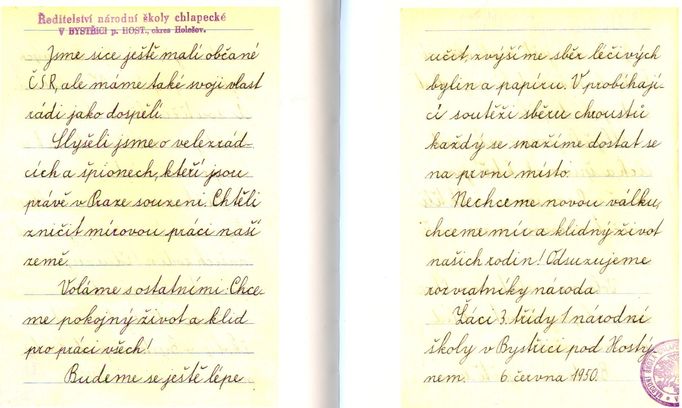 Ředitelství národní školy chlapecké
V BYSTŘICI p. HOST., okres Holešov.
Jsme sice ještě malí občané
ČSR, ale máme také svoji vlast
rádi jako dospělí.
Slyšeli jsme o velezrád-
cích a špionech, kteří jsou
právě v Praze souzeni. Chtěli
zničit mírovou práci naší
země.
Voláme s ostatními: Chce-
me pokojný život a klid
pro práci všech!
Budeme se ještě lépe
učit, zvýšíme sběr léčivých
bylin a papíru. V probíhají-
cí soutěži sběru chroustů
každý se snažíme dostat se
na první místo.
Nechceme novou válku,
chceme mír a klidný život
našich rodin! Odsuzujeme
rozvratníky národa.
Žáci 3. třídy 1 národní
školy v Bystřici pod Hostý-
nem. 6. června 1950.